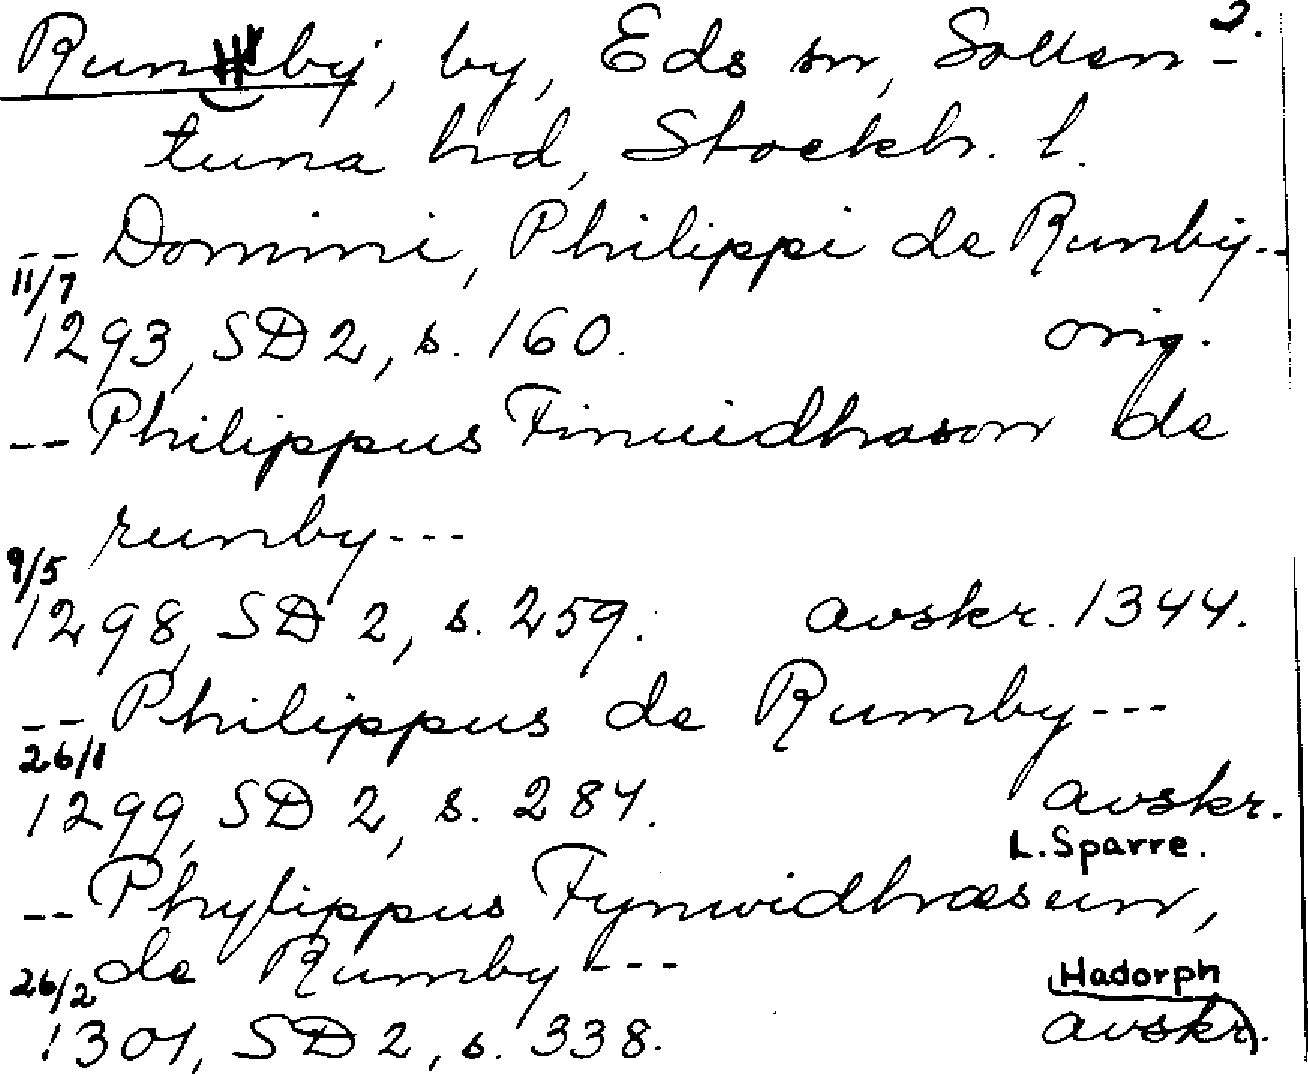 2.
Runby, by, Eds sn, Sollen-
tuna hd, Stockh. l.
-- Domini, Philippi de Runbÿ--
11/7
1293, SD 2, s. 160. orig.
-- Philippus Finuidhason de
runby---
9/5
1298, SD 2, s. 259. avskr. 1344.
-- Philippus de Rumby---
26/1
1299, SD 2, s. 284. avskr.
L. Sparre.
-- Phylippus Fynwidhæsun,
de Rumby---
26/2 Hadorph
1301, SD 2, s. 338. avskr.